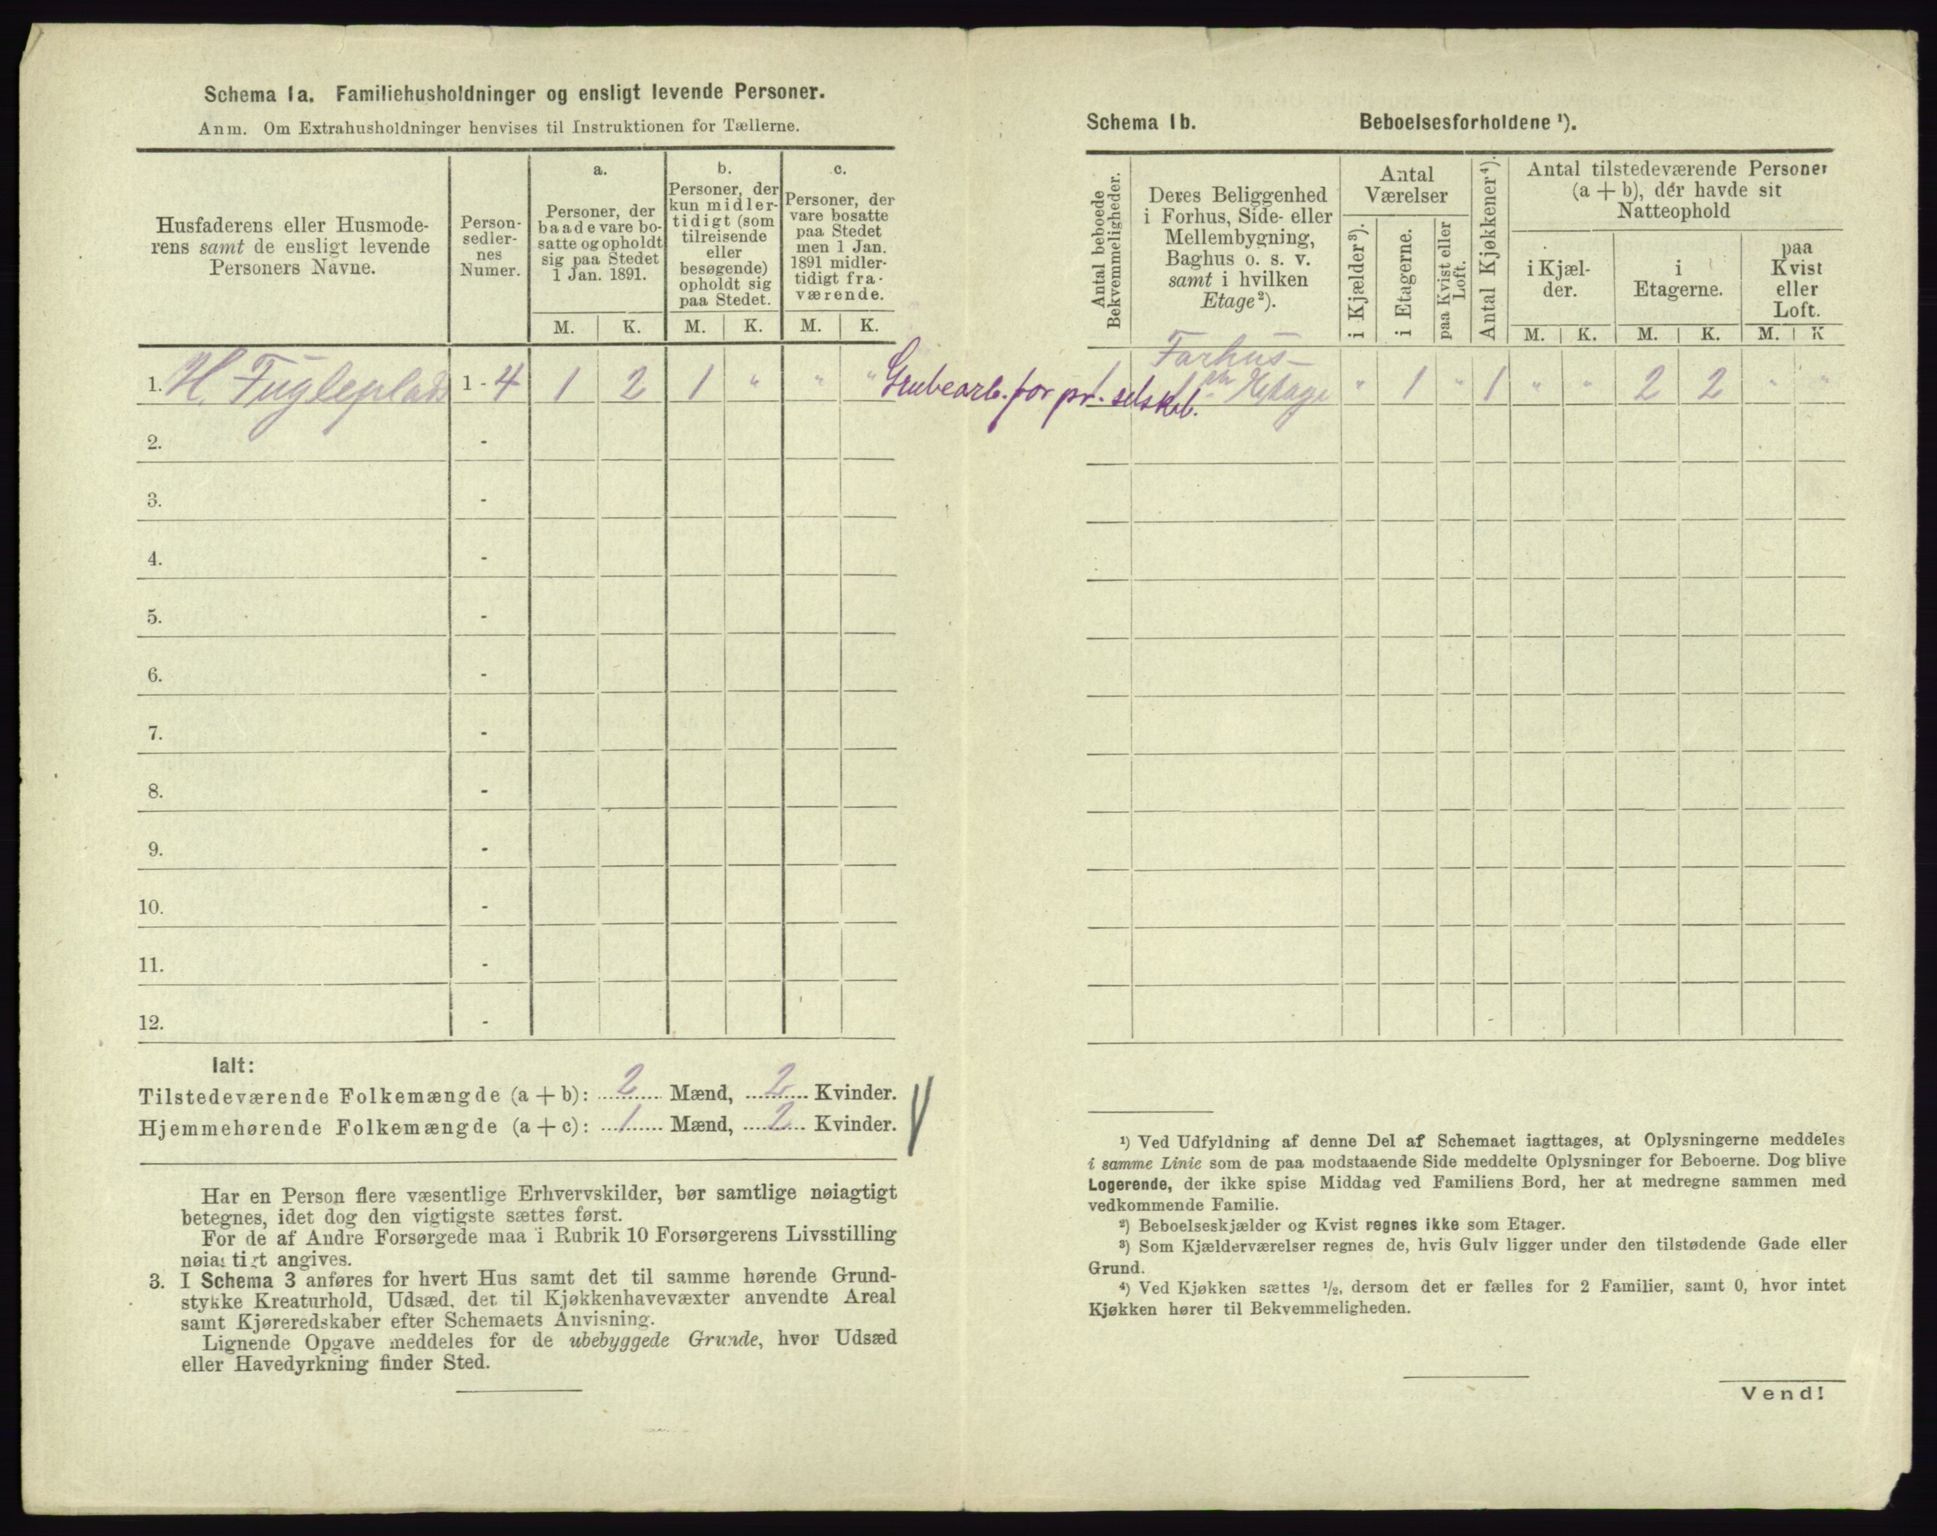 Schema 1a. Familiehusholdninger og ensligt levende Personer.
Anm. Om Extrahusholdninger henvises til Instruktionen for Tællerne.
Husfaderens eller Husmode-
rens samt de ensligt levende
Personers Navne.
Person-
sedler-
nes
Numer.
a.
Personer, der
baade vare bo-
satte og opholdt
sig paa Stedet
1 Jan. 1891.
b.
Personer, der
kun midler-
tidigt (som
tilreisende
eller
besøgende)
opholdt sig
paa Stedet.
c.
Personer, der
vare bosatte
paa Stedet
men 1 Jan.
1891 midler-
tidigt fra-
værende.
M. K. M. K. M. K.
1. H. Fugleplads 1 - 4 1 2 1 " " "
Grubearb. for pr. selskab.
2. -
3. -
4. -
5. -
6. -
7. -
8. -
9. -
10. -
11. -
12. -
Ialt:
Tilstedeværende Folkemængde (a + b): 2 Mænd, 2 Kvinder.
Hjemmehørende Folkemængde (a + c): 1 Mænd, 2 Kvinder.
Har en Person flere væsentlige Erhvervskilder, bør samtlige nøiagtigt
betegnes, idet dog den vigtigste sættes først.
For de af Andre Forsørgede maa i Rubrik 10 Forsørgerens Livsstilling
nøiagtigt angives.
3. I Schema 3 anføres for hvert Hus samt det til samme hørende Grund-
stykke Kreaturhold, Udsæd, det til Kjøkkenhavevæxter anvendte Areal
samt Kjøreredskaber efter Schemaets Anvisning.
Lignende Opgave meddeles for de ubebyggede Grunde, hvor Udsæd
eller Havedyrkning finder Sted.
Schema 1b. Beboelsesforholdene ¹).
Antal beboede
Bekvemmeligheder.
Deres Beliggenhed
i Forhus, Side- eller
Mellembygning,
Baghus o. s. v.
samt i hvilken
Etage ²).
Antal
Værelser
i Kjælder ³).
i Etagerne.
paa Kvist eller
Loft.
Antal Kjøkkener ⁴).
Antal tilstedeværende Personer
(a + b), der havde sit
Natteophold
i Kjæl-
der.
i
Etagerne.
paa
Kvist
eller
Loft.
M. K. M. K. M. K
Forhus-
1 Etage " 1 " 1 " " 2 2 " "
¹) Ved Udfyldning af denne Del af Schemaet iagttages, at Oplysningerne meddeles
i samme Linie som de paa modstaaende Side meddelte Oplysninger for Beboerne. Dog blive
Logerende, der ikke spise Middag ved Familiens Bord, her at medregne sammen med
vedkommende Familie.
²) Beboelseskjælder og Kvist regnes ikke som Etager.
³) Som Kjælderværelser regnes de, hvis Gulv ligger under den tilstødende Gade eller
Grund.
⁴) Ved Kjøkken sættes ½, dersom det er fælles for 2 Familier, samt 0, hvor intet
Kjøkken hører til Bekvemmeligheden.
Vend!